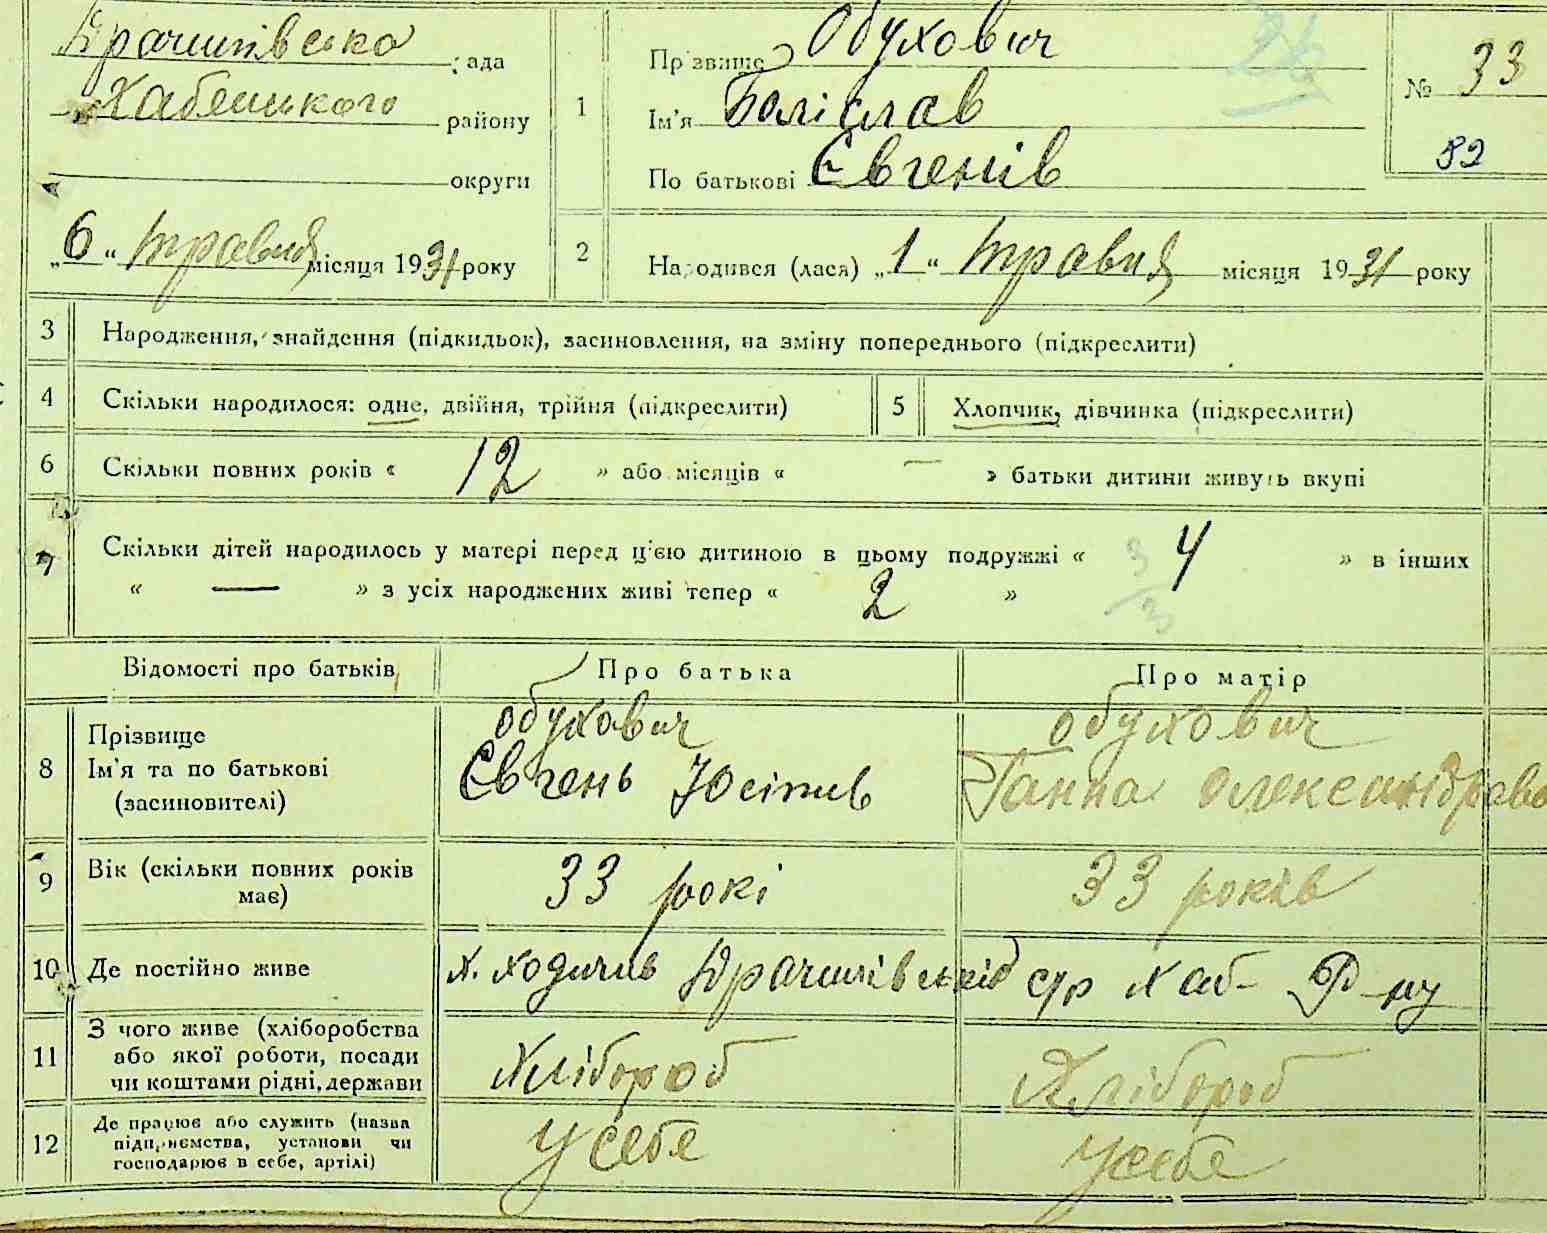 рада
Хабенського району
округи
„6“ травня місяця 1931 року
1
Прізвище Обухович
Ім'я Боліслав
По батькові Євгенів
№ 33
82
2
Народився (лася) „1“ травня місяця 1931 року
3 Народження, знайдення (підкидьок), засиновлення, на зміну попереднього (підкреслити)
4 Скільки народилося: одне, двійня, трійня (підкреслити)
5 Хлопчик, дівчинка (підкреслити)
6 Скільки повних років « 12 » або місяців « — » батьки дитини живуть вкупі
7 Скільки дітей народилось у матері перед ц'єю дитиною в цьому подружжі « 4 » в інших
« — » з усіх народжених живі тепер « 2 »
3
3
Відомості про батьків
Про батька
Про матір
8
Прізвище
Ім'я та по батькові
(засиновителі)
обухович
Євгень Юсіпів
обухович
Ганна Олександрова
9
Вік (скільки повних років
має)
33 рокі
33 років
10 Де постійно живе
х. ходичив с/р Хаб- Р-ну
11
З чого живе (хліборобства
або якої роботи, посади
чи коштами рідні, держави
Хлібороб
Хлібороб
12
Де працює або служить (назва
підприємства, установи чи
господарює в себе, артілі)
у себе
у себе